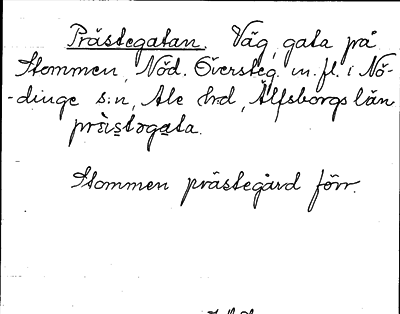 Prästegatan. Väg, gata på
Stommen, Nöd. Översteg. m. fl. i Nö-
-dinge s:n, Ale hrd, Älfsborgs län
prä̀stəgata.
Stommen prästegård förr.